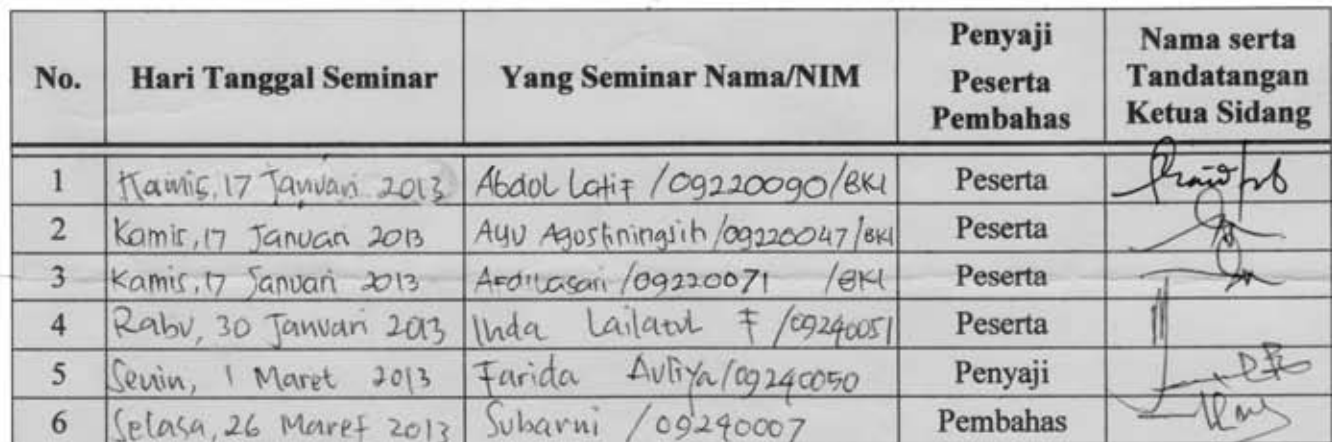 No. Hari Tanggal Seminar Yang Seminar Nama/NIM Penyaji Peserta Pembahas Nama serta Tandatangan Ketua Sidang
1 Kamis, 17 Januari 2013 Abdol Latif /09220090/BKI Peserta
2 Kamis, 17 Januari 2013 Ayu Agostiningsih /09220047/BKI Peserta
3 Kamis, 17 Januari 2013 Ardilasari /09220071 /BKI Peserta
4 Rabu, 30 Januari 2013 Inda Lailatul F /09240051 Peserta
5 Senin, 1 Maret 2013 Farida Avliya/09240050 Penyaji
6 Selasa, 26 Maret 2013 Subarni /09240007 Pembahas